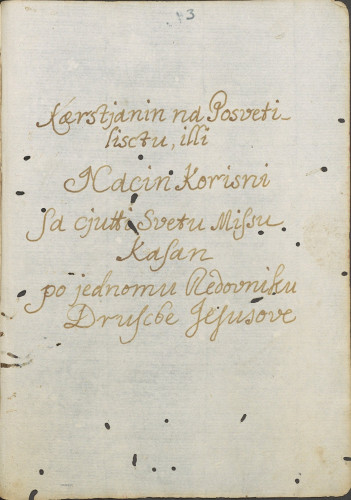 13
Kærstjanin na Posveti-
lisctu, illi
Nacin Korisni
ſa cjutti Svetu Miſsu
Kaſan
po jednomu Redovniku
Druscbe Jeſusove